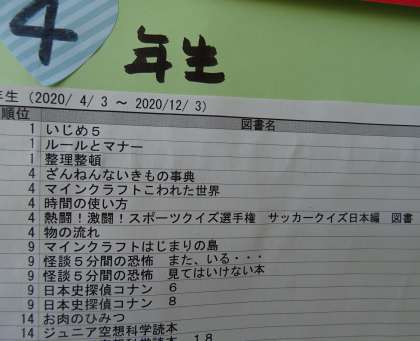 4
年生
年生 (2020/ 4/ 3 ～ 2020/12/ 3)
順位 図書名
1 いじめ５
1 ルールとマナー
1 整理整頓
4 ざんねんないきもの事典
4 マインクラフトこわれた世界
4 時間の使い方
4 熱闘！激闘！スポーツクイズ選手権 サッカークイズ日本編 図書
4 物の流れ
9 マインクラフトはじまりの島
9 怪談５分間の恐怖 また、いる・・・
9 怪談５分間の恐怖 見てはいけない本
9 日本史探偵コナン ６
9 日本史探偵コナン ８
14 お肉のひみつ
14 ジュニア空想科学読本
空想科学読本 １８